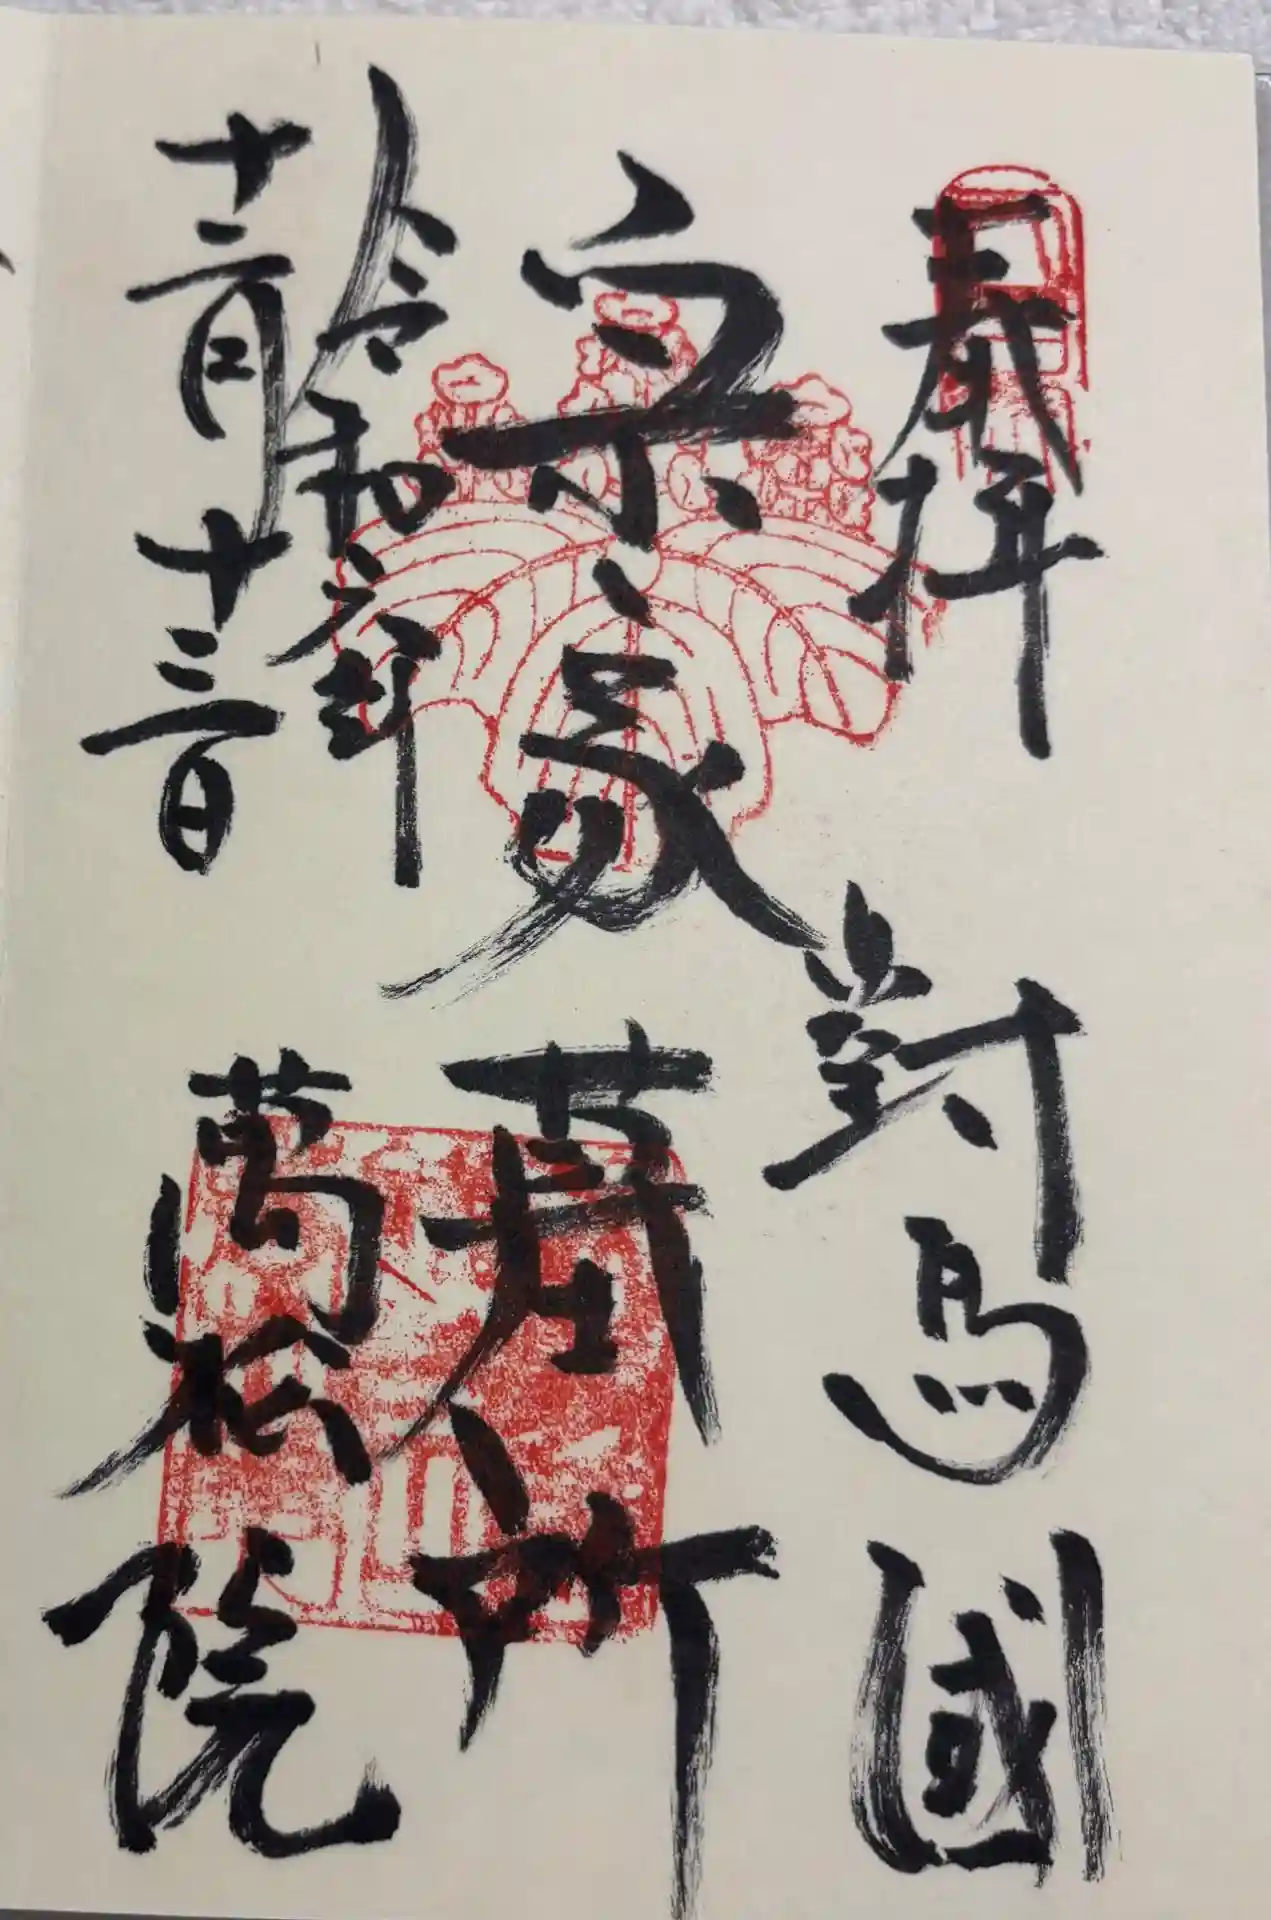 奉拝 對馬國
宗家墓所
令和六年
十二月十三日
萬松院